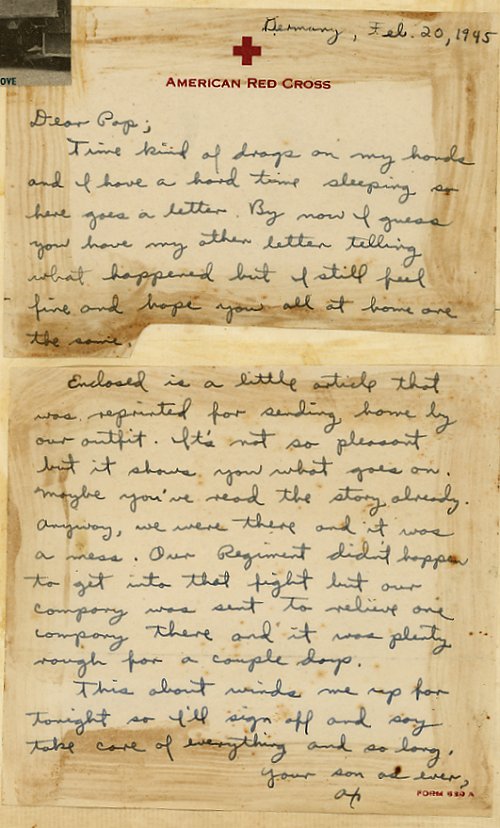 OVE
Germany, Feb. 20, 1945
AMERICAN RED CROSS
Dear Pop;
Time kind of drags on my hands
and I have a hard time sleeping so
here goes a letter. By now I guess
you have my other letter telling
what happened but I still feel
fine and hope you all at home are
the same.
Enclosed is a little article that
was reprinted for sending home by
our outfit. It's not so pleasant
but it shows you what goes on.
Maybe you've read the story already.
Anyway, we were there and it was
a mess. Our Regiment didn't happen
to get into that fight but our
company was sent to relieve one
company there and it was plenty
rough for a couple days.
This about winds me up for
tonight so I'll sign off and say
take care of everything and so long.
Your son as ever,
FORM 539 A